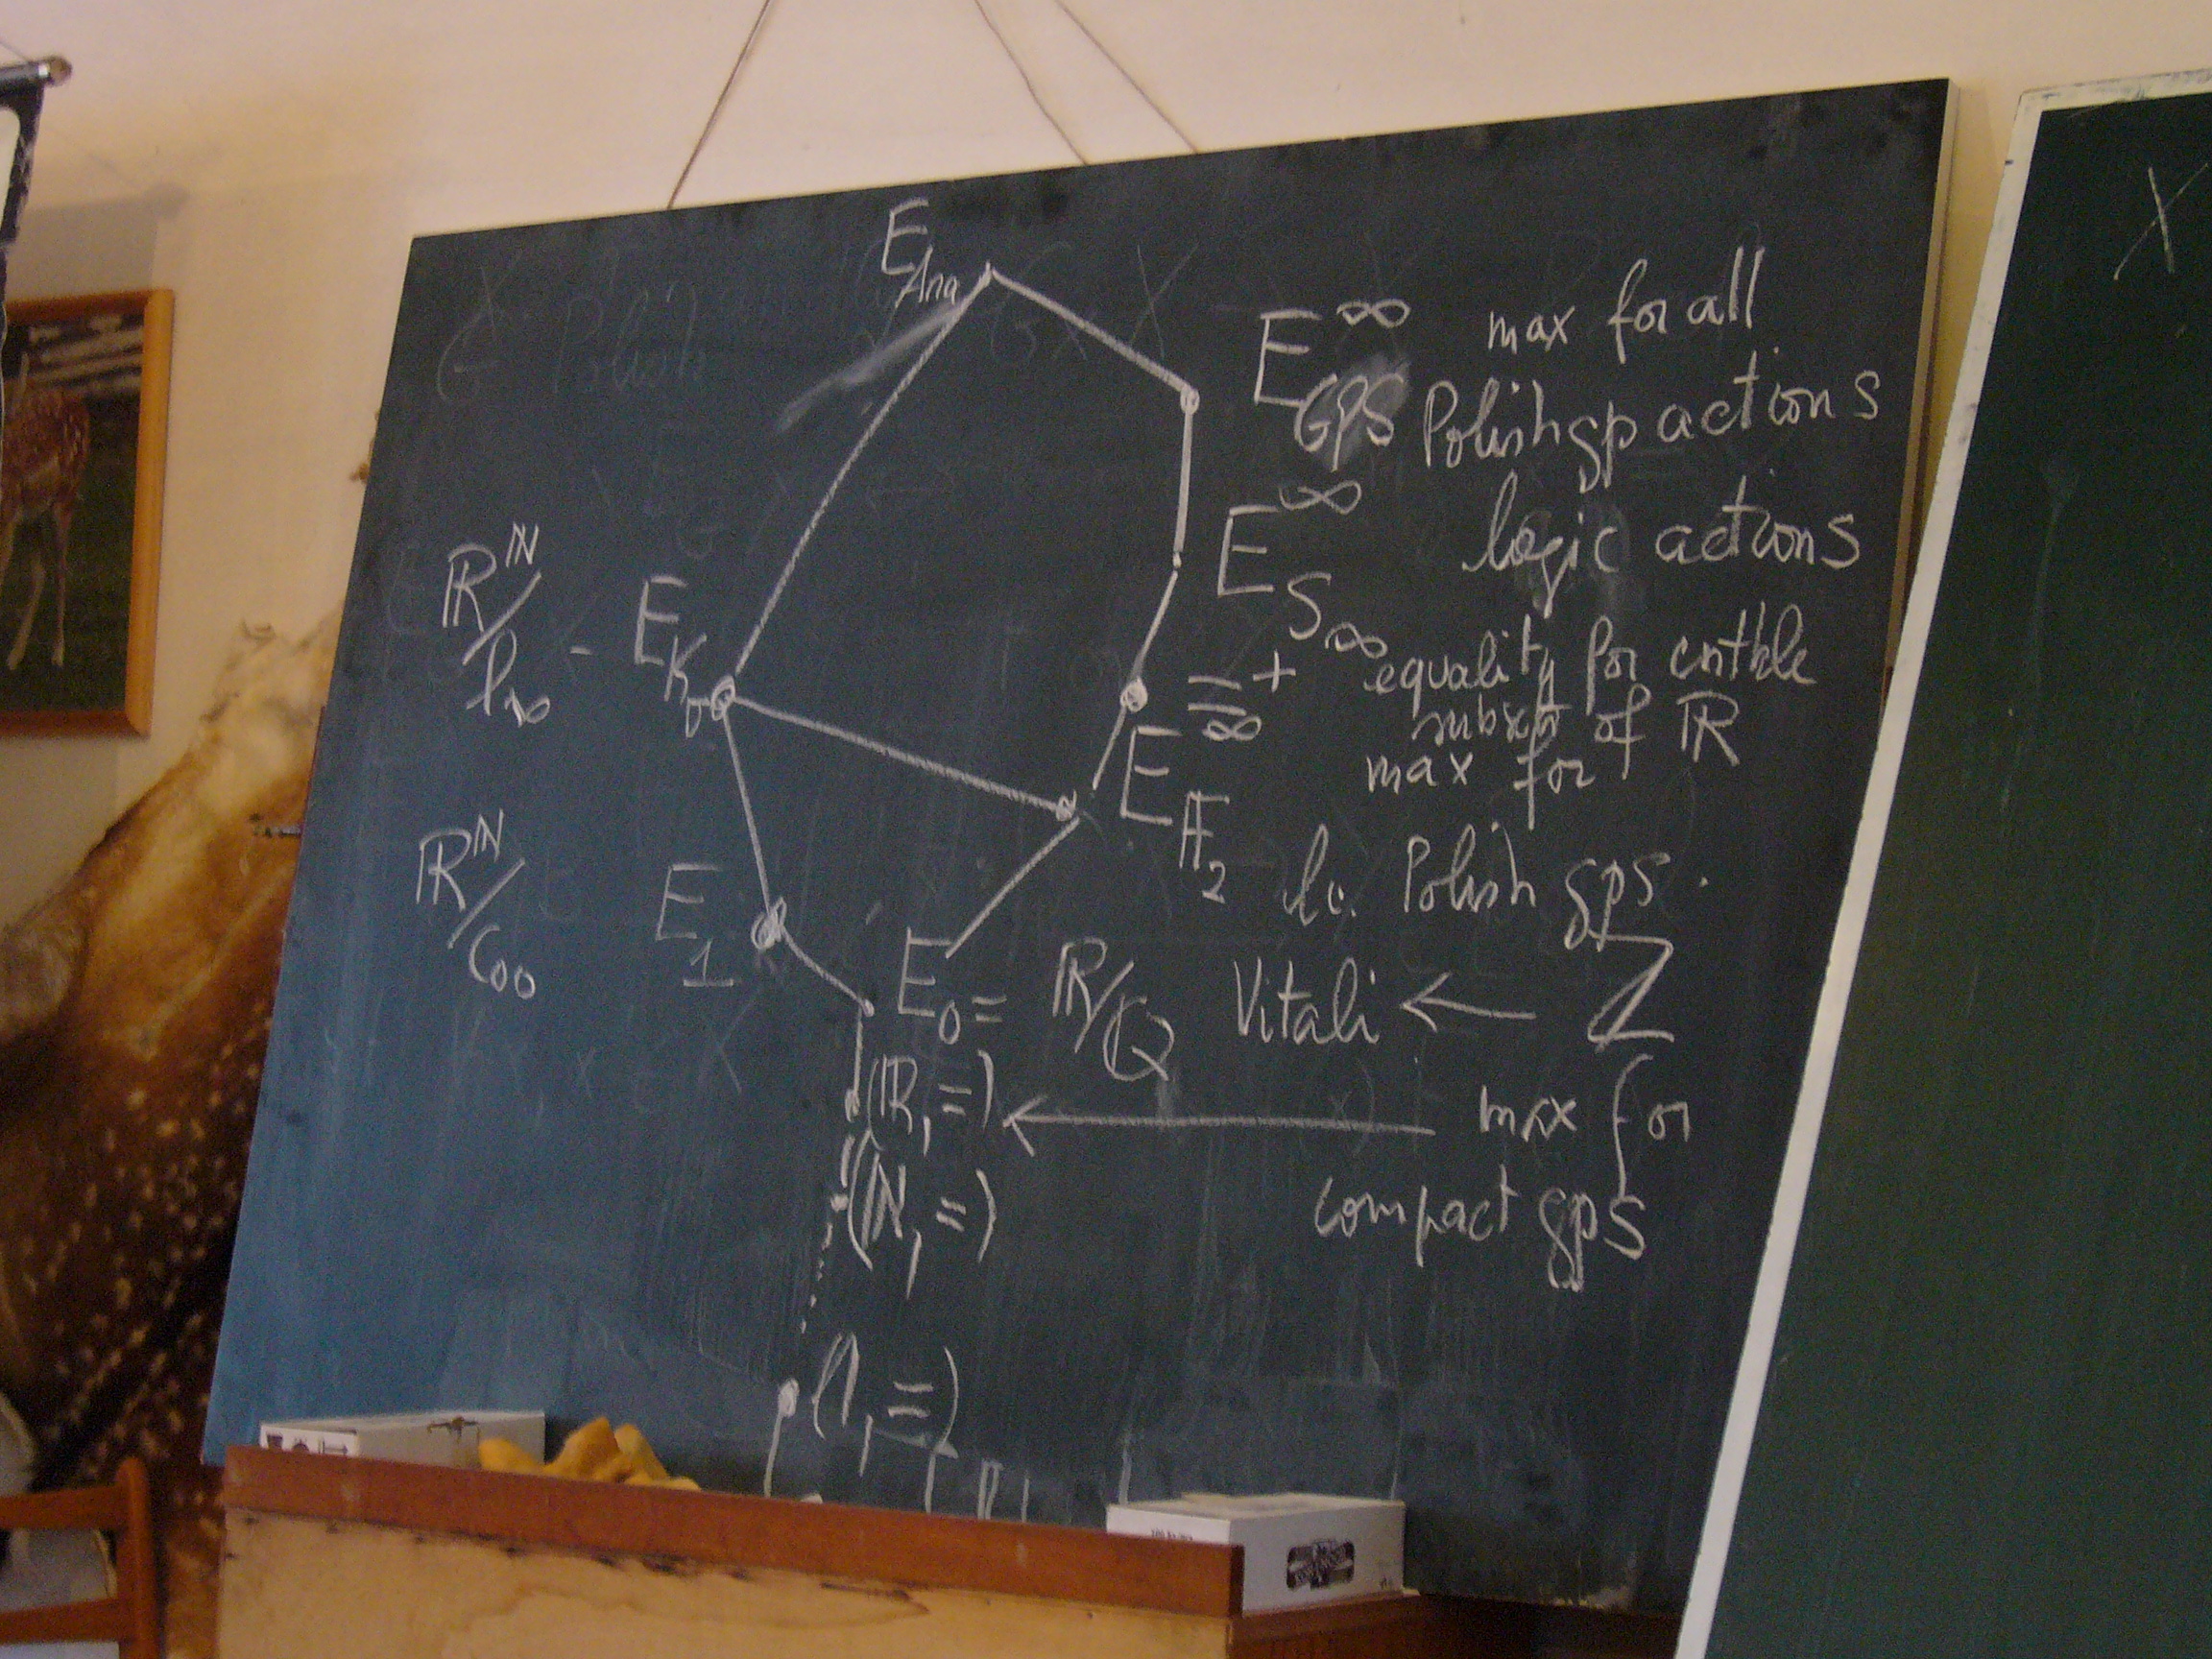 E_Ana
E^∞_GPS max for all
Polish gp actions
E^∞_S∞ logic actions
ℝ^ℕ/ℓ_∞ - E_Kσ
=^+_∞ equality for cntble
subsets of ℝ
E_F_2 max for
l.c. Polish gps.
ℝ^ℕ/C_00 E_1
E_0 = ℝ/ℚ Vitali ← ℤ
(ℝ, =) ← max for
compact gps
(ℕ, =)
(1, =)
X